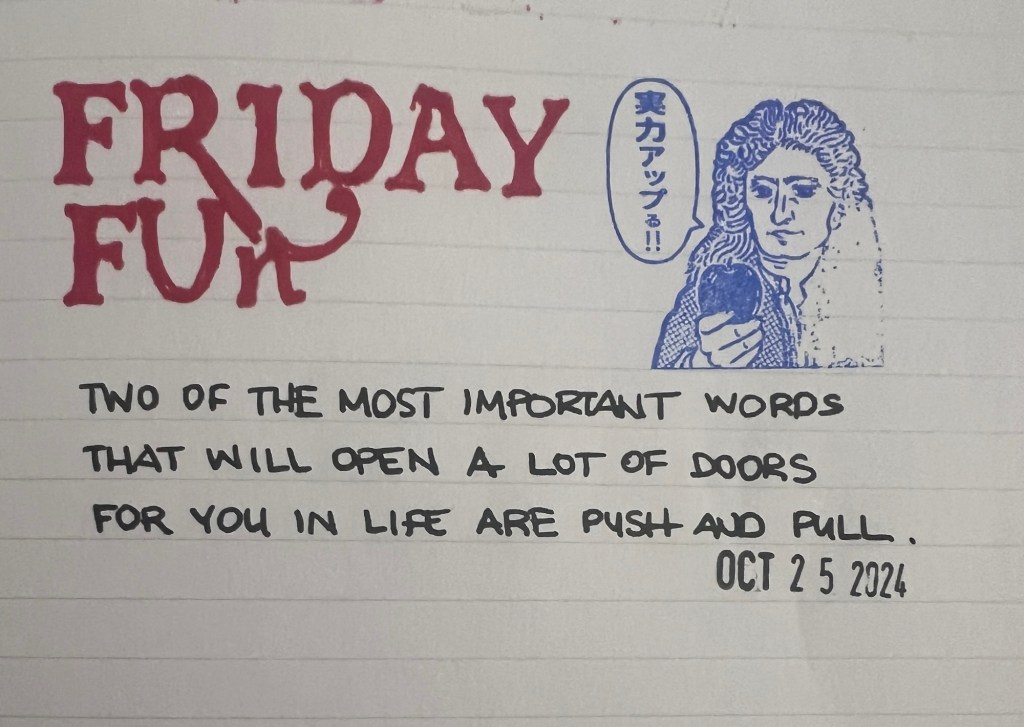 FRIDAY
FUn
実力アップる!!
TWO OF THE MOST IMPORTANT WORDS
THAT WILL OPEN A LOT OF DOORS
FOR YOU IN LIFE ARE PUSH AND PULL.
OCT 25 2024